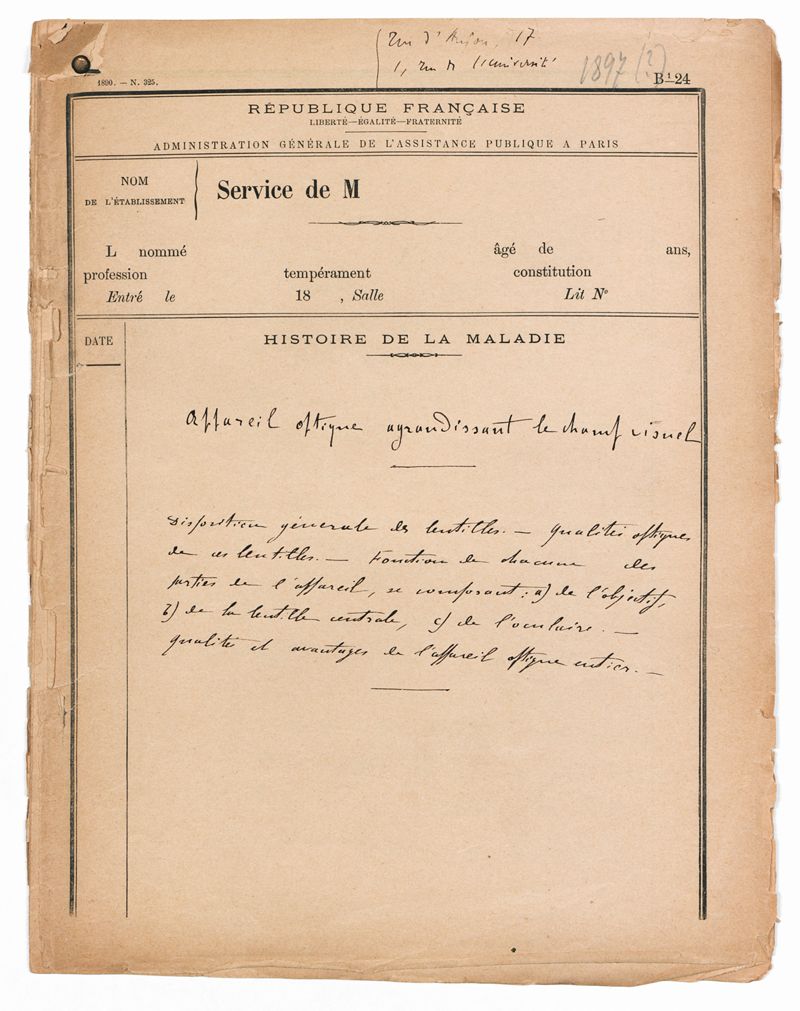 rue d'Anjou, 17
1, rue de l'université
1897 (?)
1890. — N. 325.
B¹ 24
RÉPUBLIQUE FRANÇAISE
LIBERTÉ—ÉGALITÉ—FRATERNITÉ
ADMINISTRATION GÉNÉRALE DE L'ASSISTANCE PUBLIQUE A PARIS
NOM
DE L'ÉTABLISSEMENT
Service de M
L nommé âgé de ans,
profession tempérament constitution
Entré le 18 , Salle Lit Nº
DATE
HISTOIRE DE LA MALADIE
Appareil optique agrandissant le champ visuel
Disposition générale des lentilles. — Qualités optiques
de ces lentilles. — Fonction de chacune des
parties de l'appareil, se composant : a) de l'objectif,
b) de la lentille centrale, c) de l'oculaire. —
Qualités et avantages de l'appareil optique entier. —